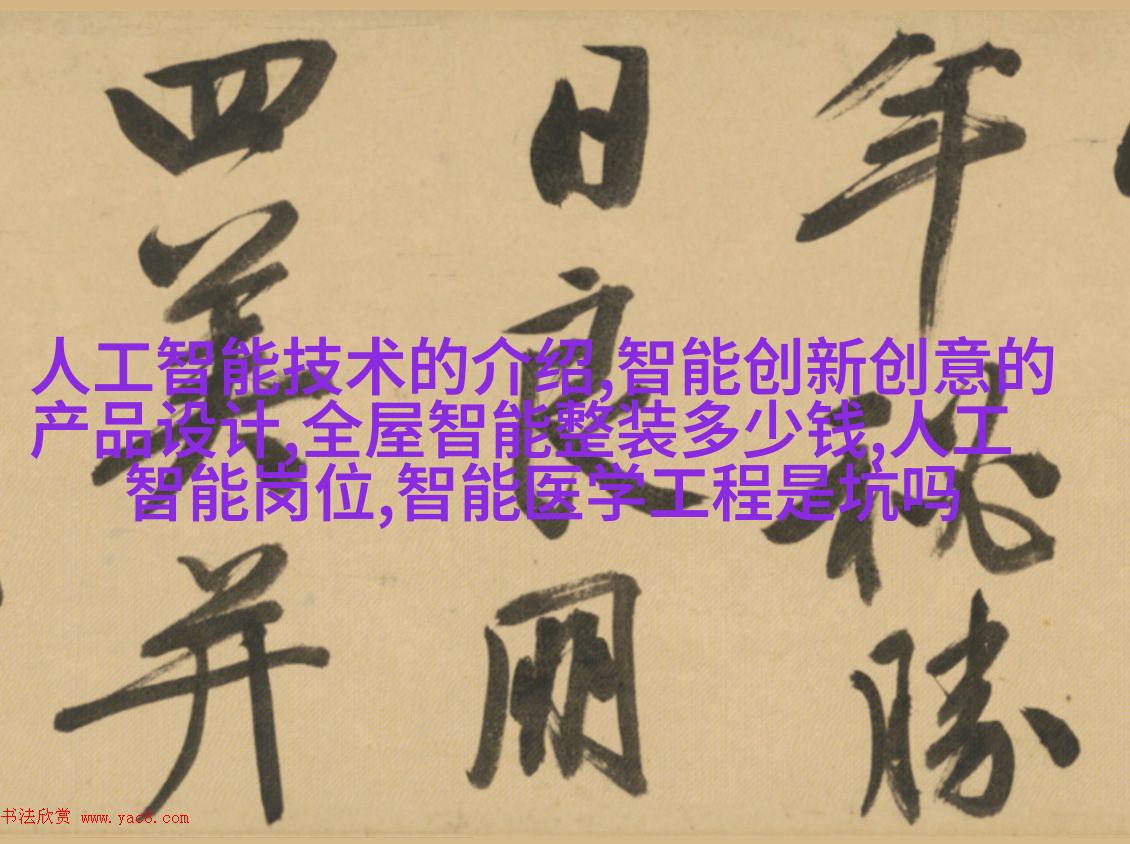 年秘勝
日良用
四美并
人工智能技术的介绍,智能创新创意的
产品设计,全屋智能整装多少钱,人工
智能岗位,智能医学工程是坑吗
书法欣赏 www.yac8.com